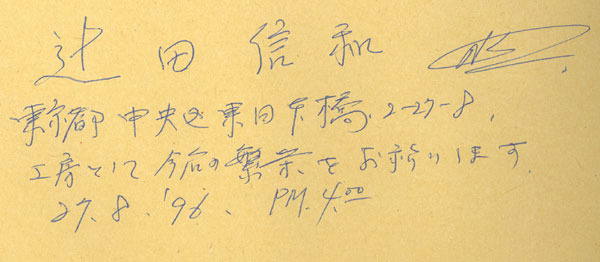 辻田信和
東京都中央区東日本橋2-27-8,
工房として今后の繁栄をお祈りします.
27. 8. '96. PM. 4.00